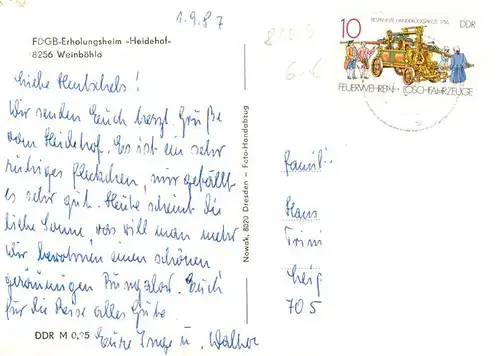 1.9.87
FDGB-Erholungsheim "Heidehof"
8256 Weinböhla
Liebe Hentschels!
Wir senden Euch herzl. Grüße
vom Heidehof. Es ist ein sehr
ruhiges Fleckchen, mir gefällt
es sehr gut. Heute scheint die
liebe Sonne, was will man mehr
Wir bewohnen einen schönen
geräumigen Bungalow. Euch
für die Reise alles Gute.
Eure Inge u. Walter
DDR M 0,25
Nowak, 8020 Dresden – Foto-Handabzug
10
BESPANNTE HANDDRUCKSPRITZE 1756
DDR
FEUERWEHREN - LÖSCHFAHRZEUGE
Famili
Hans
Trini
Leip
705